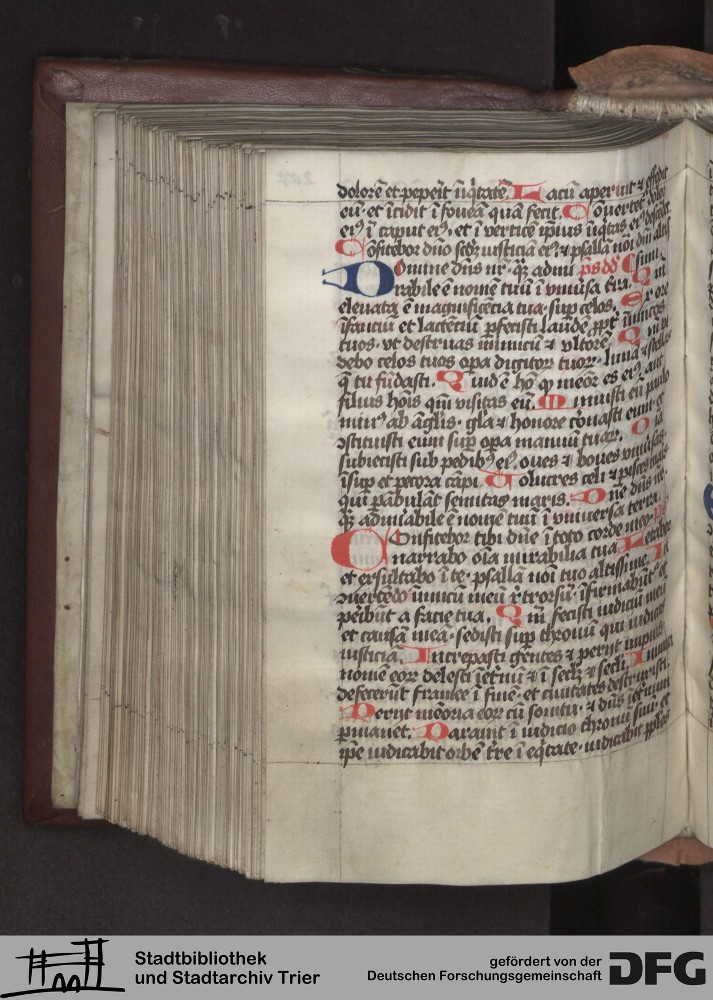 dolorē et peperit īiq̄tatē. Lacū aperuit ⁊ effodit
eū· et īcidit ī foueā quā fecit. Conuertet᷑ dolor
eiꝰ ī caput eiꝰ· et ī vertice ipīus īiq̄tas eiꝰ descēdet
Cōfitebor dn̄o scd̄ꝫ iusticiā eiꝰ· ⁊ psallā noī dn̄i altissimi
Domine dn̄s nr̄· q̄ꝫ admi ps dd
rabile ē nomē tuū ī vniuersa t̄ra. Qm̄
eleuata ē magnificēcia tua· sup celos. Ex ore
īfanciū et lactēciū perfecisti laudē ꝓpt̄ inimicos
tuos· vt destruas inimicū ⁊ vltorē. Qm̄ vi
debo celos tuos opa digitoꝝ tuoꝝ· lunā ⁊ stellas
q̄ tu fūdasti. Quid ē hō ꝙ meōr es eiꝰ aut
filius hoīs qm̄ visitas eū. Minuisti eū paulo
minꝰ ab āgl̄is· gl̄a ⁊ honore coronasti eum· et
ꝯstituisti eum sup opa manuū tuaꝝ. Oīa
subiecisti sub pedibꝰ eiꝰ· oues ⁊ boues vniūsas·
īsup et pecora cāpi. Volucres celi ⁊ pisces maris
qui pābulāt semitas maris. Dn̄e dn̄s nr̄·
q̄ꝫ admiabile ē nomē tuū ī vniuersa terra. ps
Confitebor tibi dn̄e ī toto corde meo·
narrabo oīa mirabilia tua. Letabor
et exsultabo ī te· psallā noī tuo altissime. In
ꝯuertēdo inimicū meū retrorsū· īfirmabūt᷑ et
peribūt a facie tua. Qm̄ fecisti iudiciū meū
et causā meā· sedisti sup thronū qui iudicas
iusticiā. Increpasti gentes ⁊ perijt impiꝰ·
nomē eoꝝ delesti īet̄nū ⁊ ī seclꝫ secli. Inimici
defecerūt framee ī finē· et ciuitates destruxisti.
Perijt meōria eoꝝ cū sonitu· ⁊ dn̄s īet̄num
ꝑmanet. Parauit ī iudicio thronū suū· et
ip̄e iudicabit orbē t̄re ī eq̄tate· iudicabit pplos
Stadtbibliothek
und Stadtarchiv Trier
gefördert von der
Deutschen Forschungsgemeinschaft
DFG